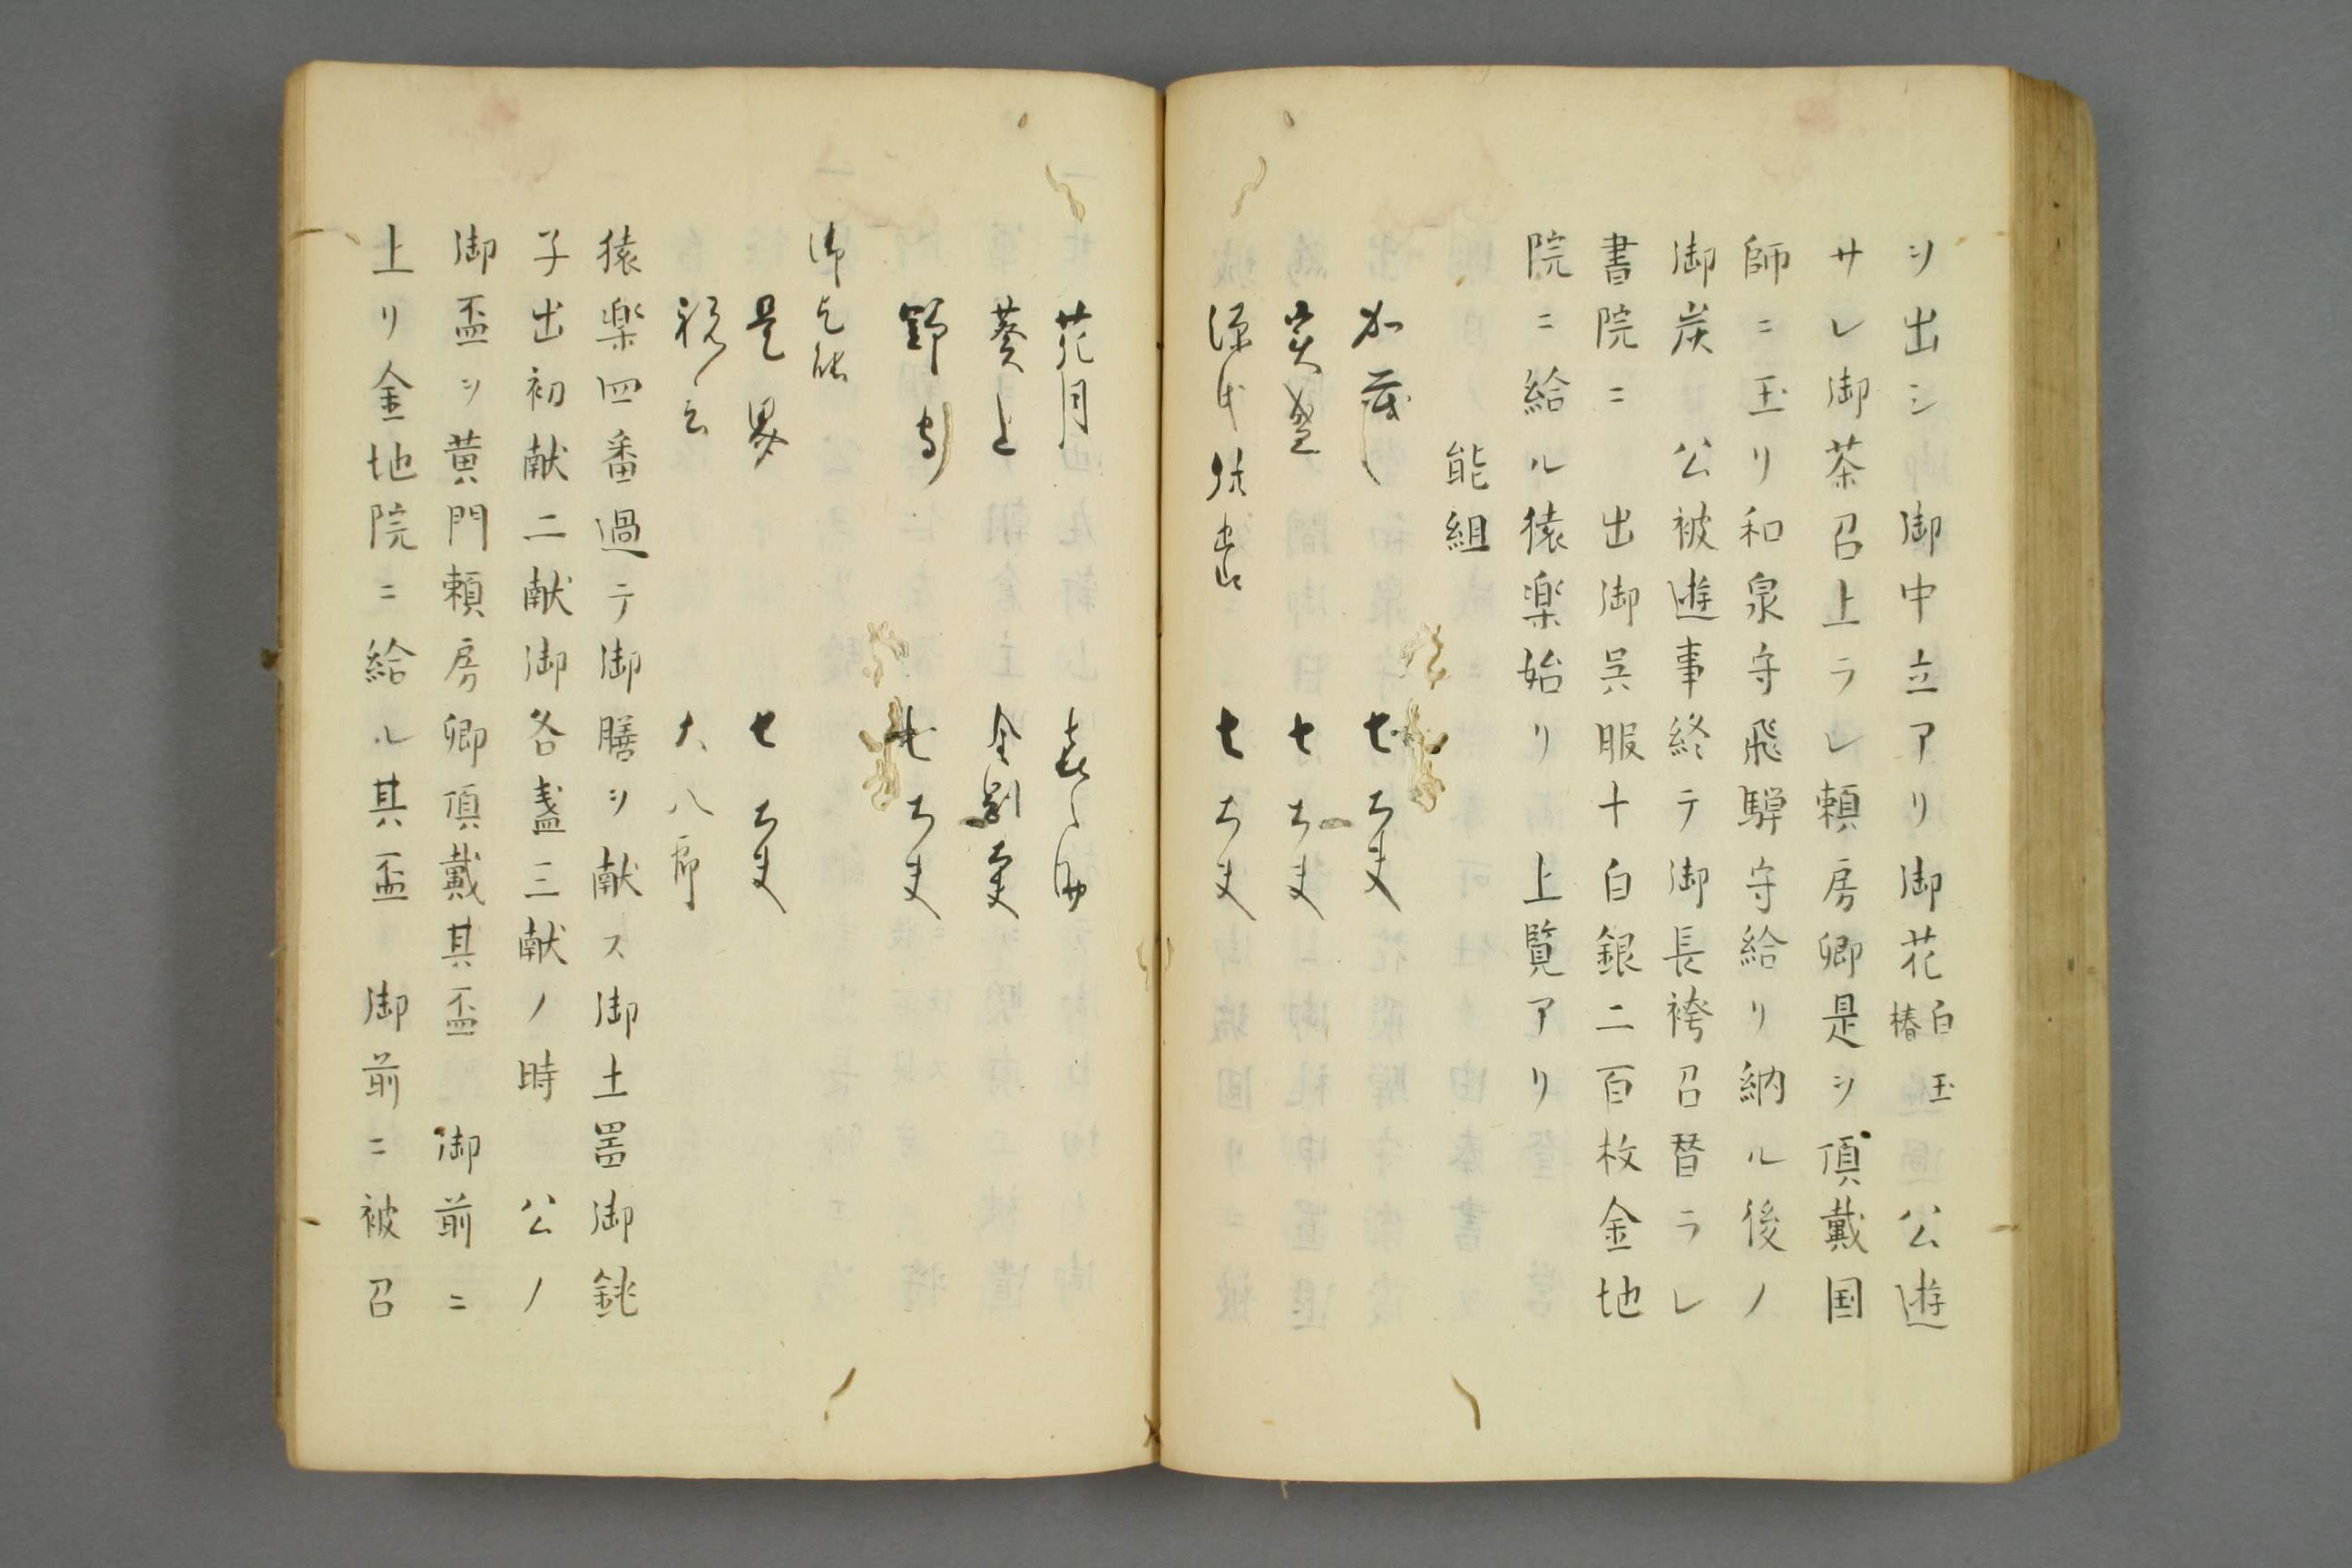 ヲ出シ 御中立アリ御花白玉椿 公遊
サレ御茶召上ラレ頼房卿是ヲ頂戴国
師ニ玉リ和泉守飛騨守給リ納ル後ノ
御炭 公被遊事終テ御長袴召替ラレ
書院ニ 出御呉服十白銀二百枚金地
院ニ給ル猿楽始リ 上覧アリ
能組
加茂 七太夫
実盛 七太夫
源氏供養 七太夫
花月 喜之助
葵上 金剛太夫
野守 七太夫
御乞能
是界 七太夫
祝言 大八郎
猿楽四番過テ御膳ヲ献ス御土器御銚
子出初献二献御各盞三献ノ時 公ノ
御盃ヲ黄門頼房卿頂戴其盃 御前ニ
上リ金地院ニ給ル其盃 御前ニ被召